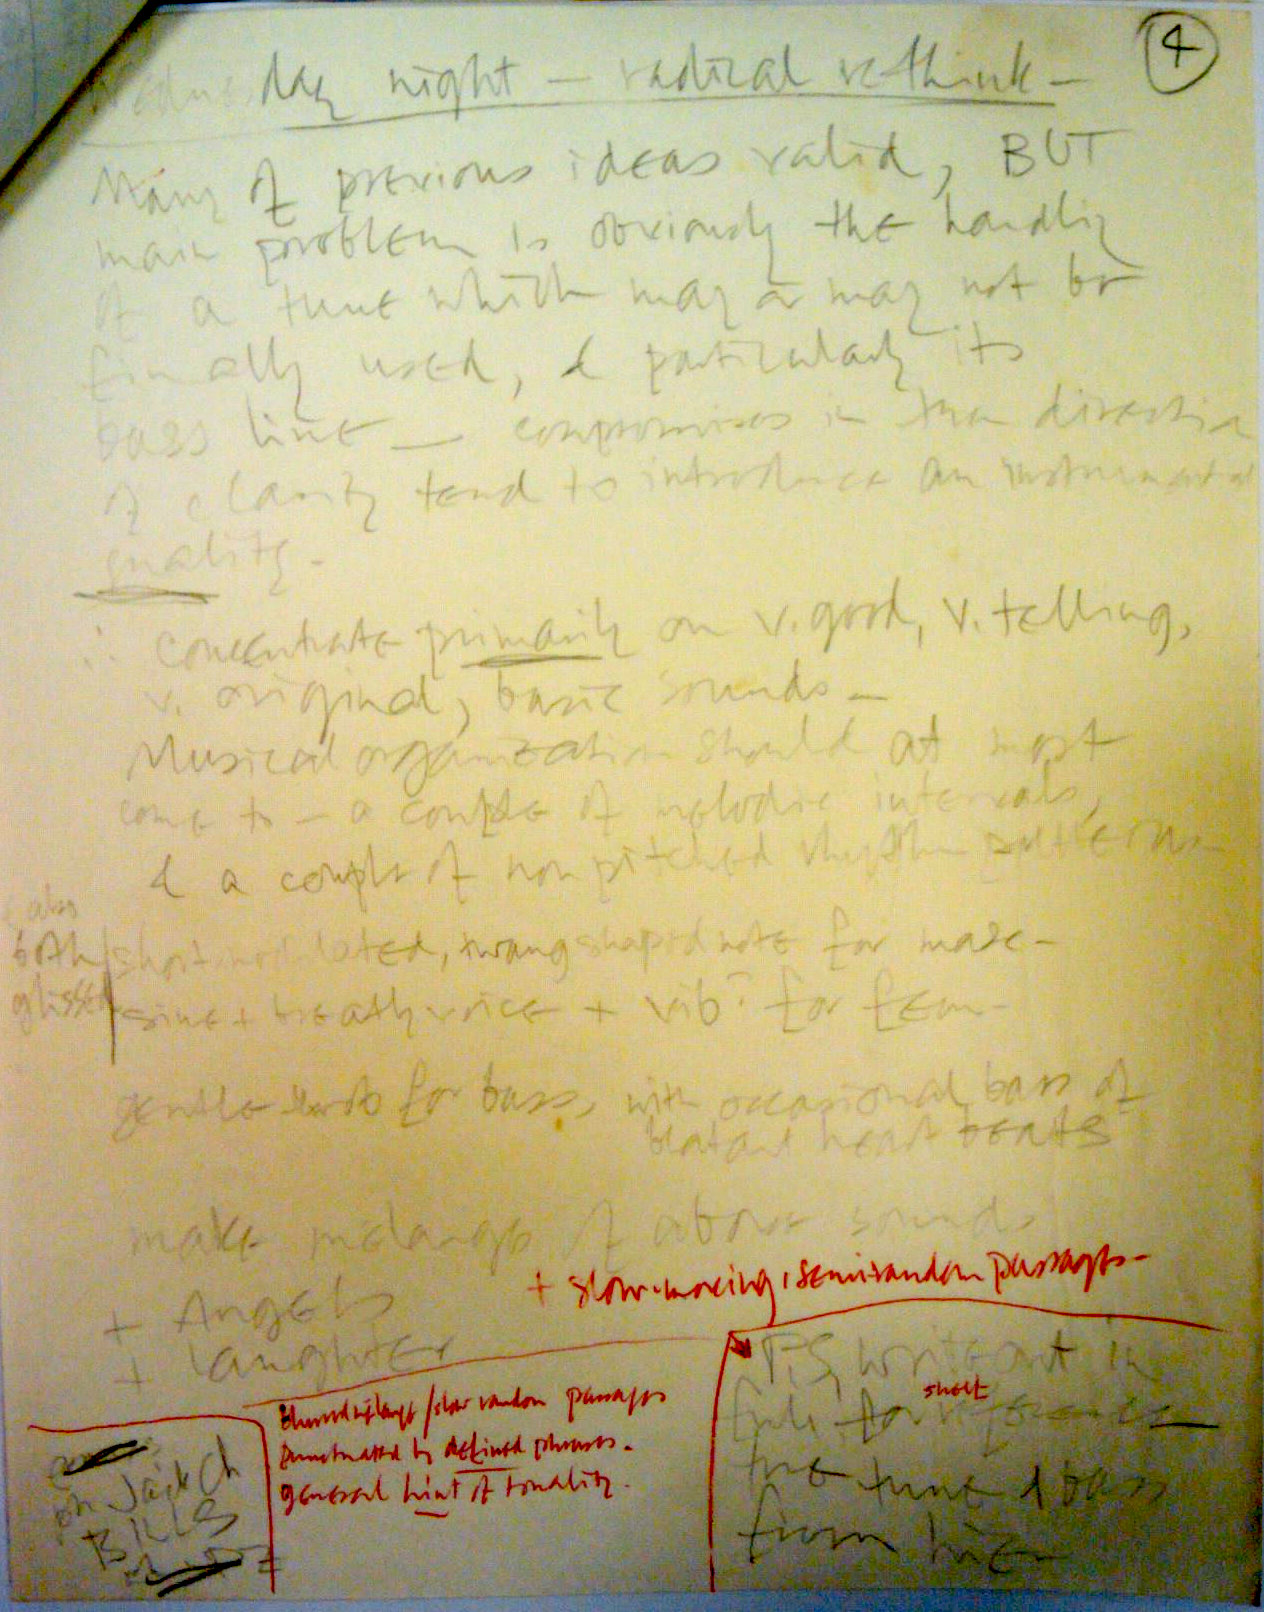 4
Wednesday night — radical rethink —
Many of previous ideas valid, BUT
main problem is obviously the handling
of a tune which may or may not be
finally used, & particularly its
bass line — compromises in the direction
of clarity tend to introduce an instrumental
quality.
∴ Concentrate primarily on v. good, v. telling,
v. original, basic sounds —
Musical organization should at most
come to — a couple of melodic intervals,
& a couple of non pitched rhythm patterns
(also
both
glissed
short modulated, twang shaped note for masc —
sine + breathy voice + vib? for fem —
gentle for bass, with occasional bass of
blatant heart beats
make melange of above sounds
+ slow-moving, semirandom passages —
+ Angels
+ laughter
/slow random passages
punctuated by defined phrases.
general hint of tonality.
ph Jack Ch
BILLS
P.S. write out in
full, for
short
the tune & bass
from